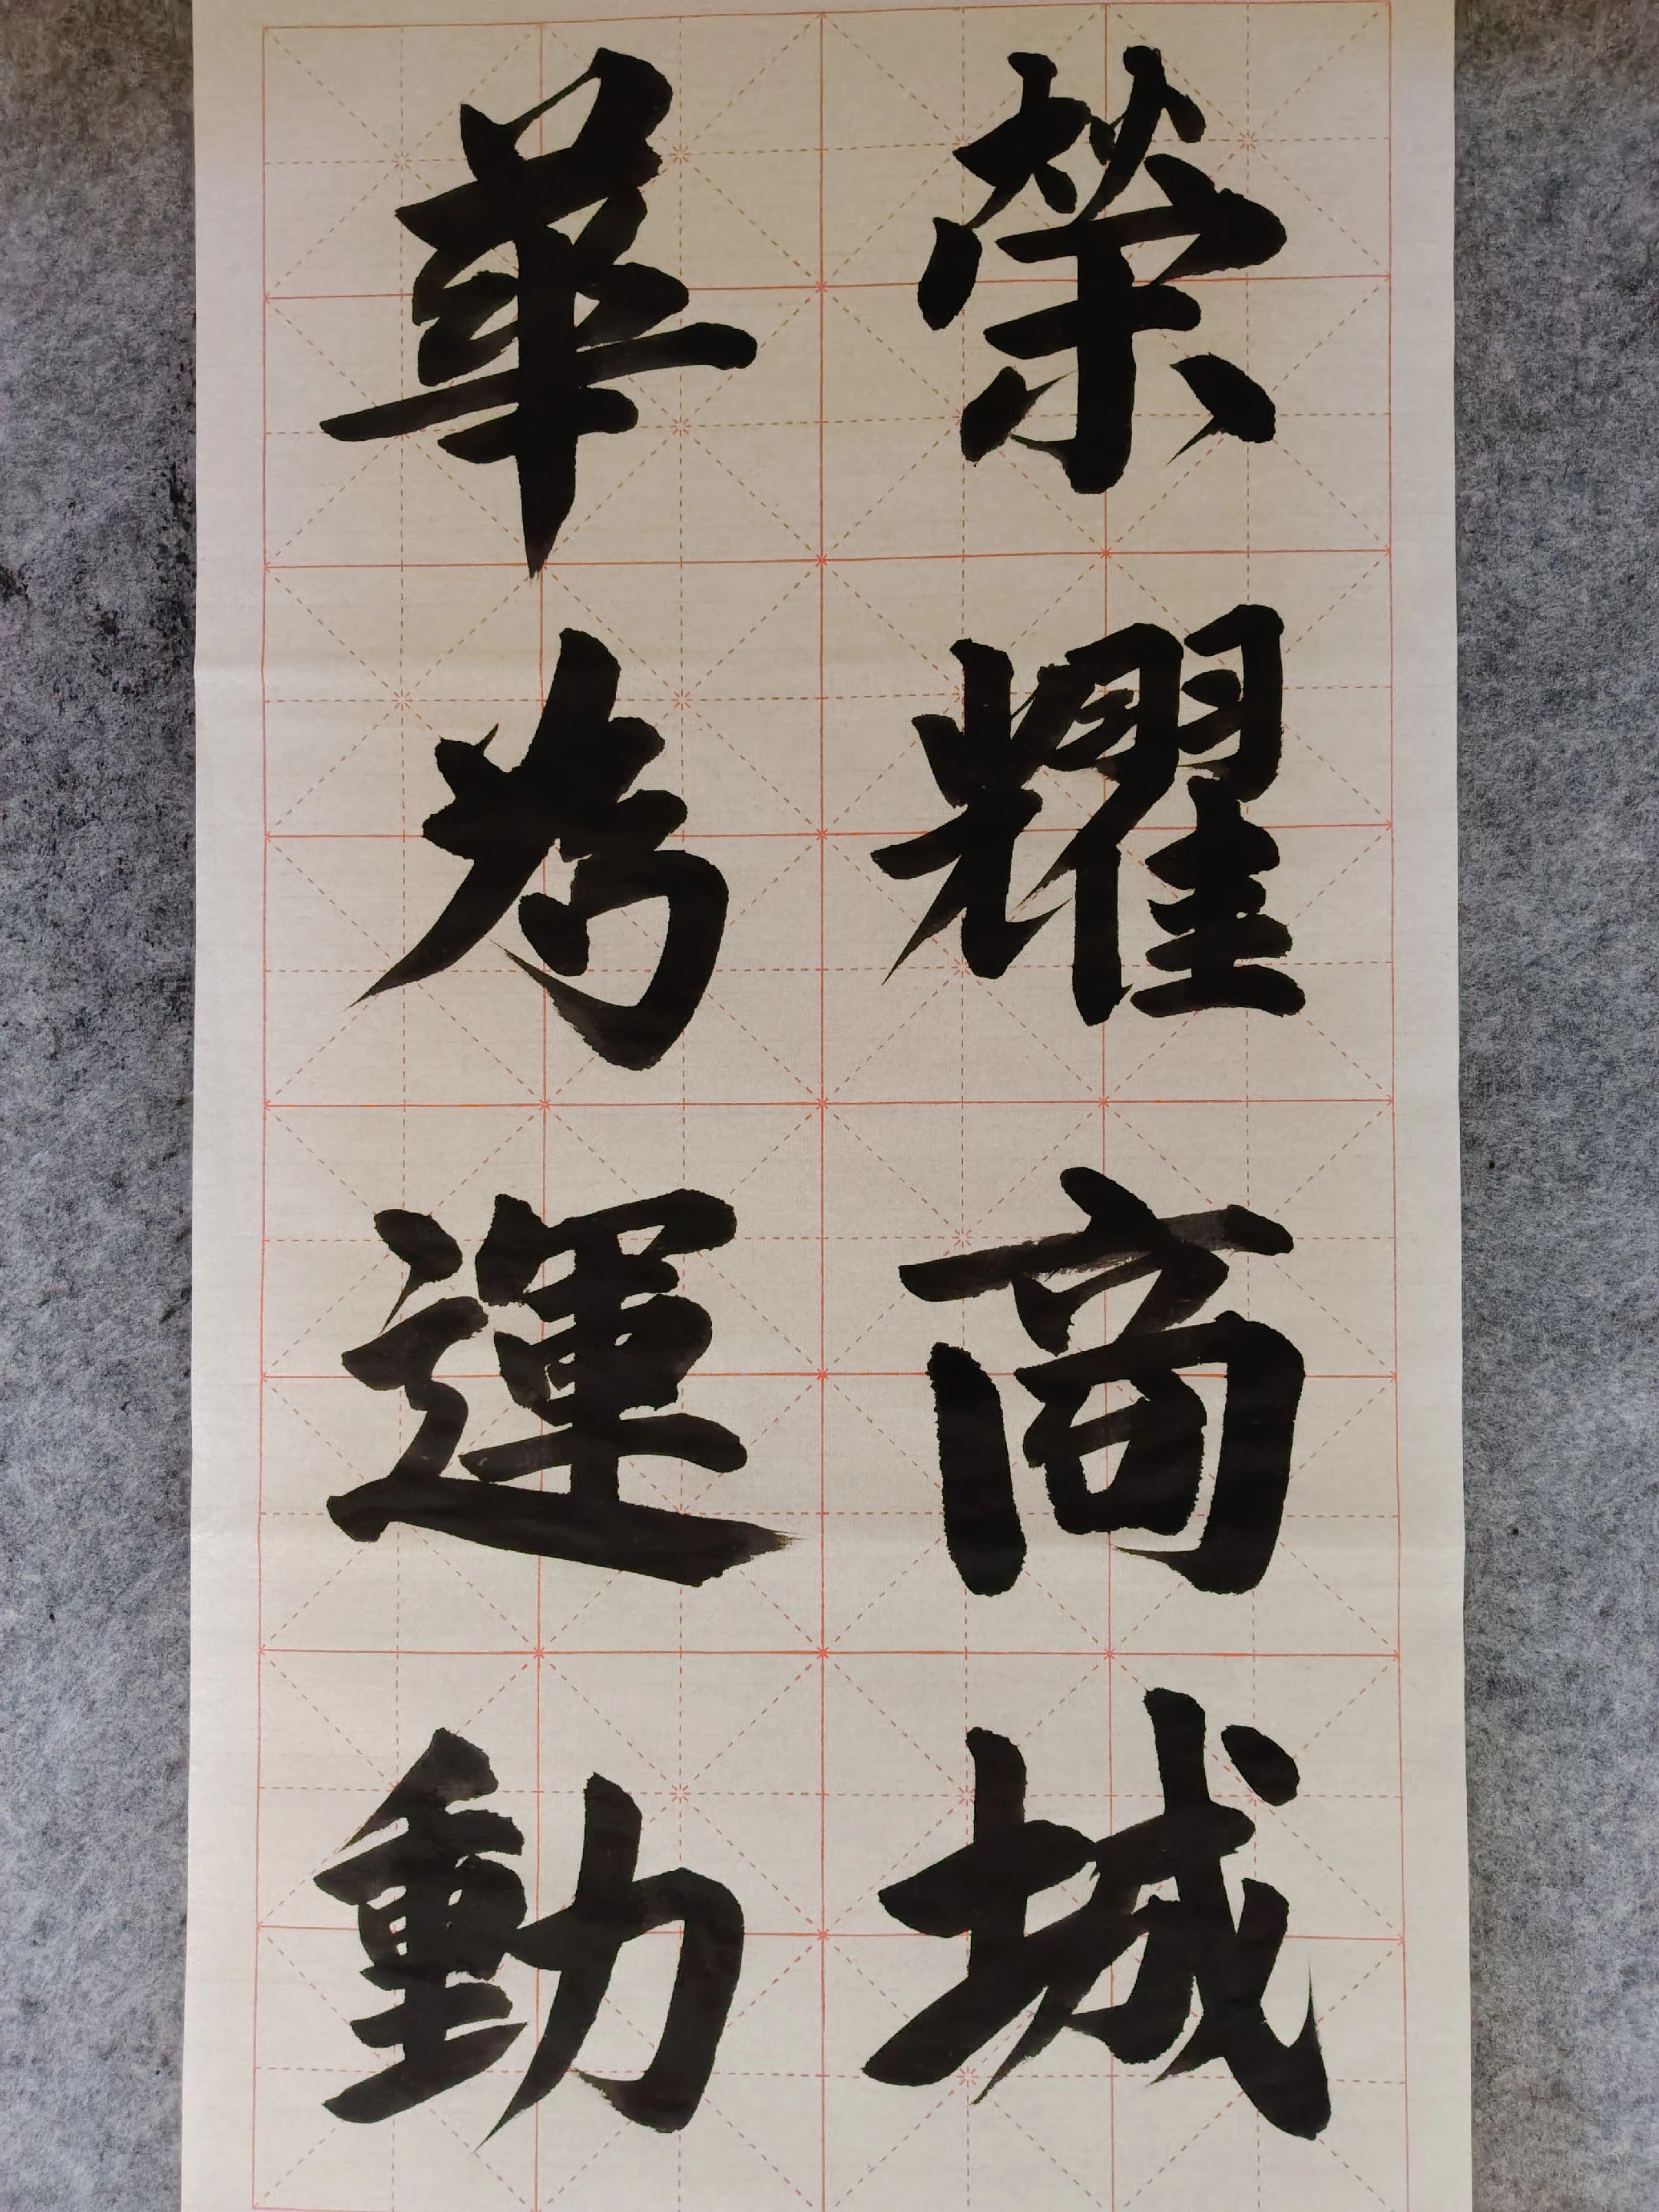 榮耀商城
華為運動